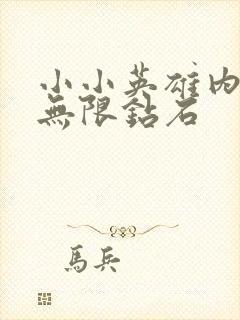 小小英雄内
無限鉆石
馬兵